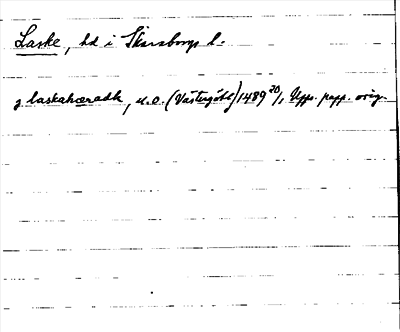 Laske, hd i Skarsborgs l.
j laskahæradh, u.o. (Västergötl) 1489 20/1 Upps. papp. orig.